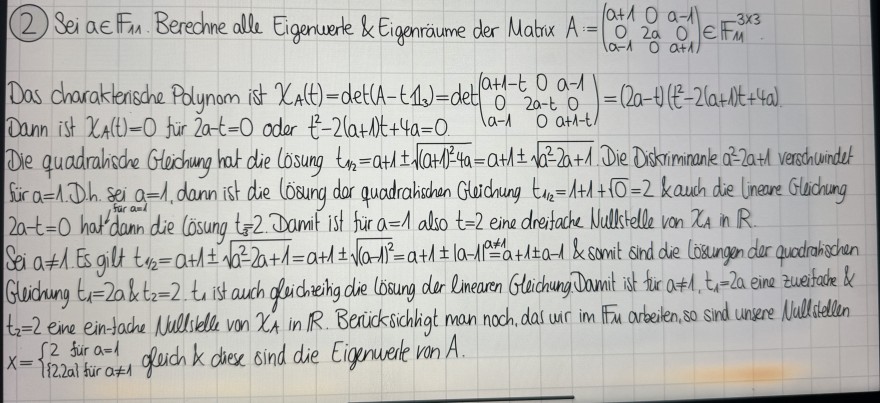 ② Sei a∈𝔽₁₁. Berechne alle Eigenwerte & Eigenräume der Matrix A:=(a+1 0 a-1 / 0 2a 0 / a-1 0 a+1)∈𝔽₁₁^{3x3}.
Das charakterische Polynom ist χ_A(t)=det(A-t𝟙₃)=det(a+1-t 0 a-1 / 0 2a-t 0 / a-1 0 a+1-t)=(2a-t)(t²-2(a+1)t+4a).
Dann ist χ_A(t)=0 für 2a-t=0 oder t²-2(a+1)t+4a=0.
Die quadratische Gleichung hat die Lösung t_{1/2}=a+1±√((a+1)²-4a)=a+1±√(a²-2a+1). Die Diskriminante a²-2a+1 verschwindet
für a=1. D.h. sei a=1, dann ist die Lösung der quadratischen Gleichung t_{1/2}=1+1+√0=2 & auch die lineare Gleichung
2a-t=0 hat für a=1 dann die Lösung t₃=2. Damit ist für a=1 also t=2 eine dreifache Nullstelle von χ_A in ℝ.
Sei a≠1. Es gilt t_{1/2}=a+1±√(a²-2a+1)=a+1±√((a-1)²)=a+1±|a-1| a≠1 = a+1±a-1 & somit sind die Lösungen der quadratischen
Gleichung t₁=2a & t₂=2. t₁ ist auch gleichzeitig die Lösung der linearen Gleichung. Damit ist für a≠1, t₁=2a eine zweifache &
t₂=2 eine ein-fache Nullstelle von χ_A in ℝ. Berücksichtigt man noch, das wir im 𝔽₁₁ arbeiten, so sind unsere Nullstellen
x={2 für a=1 / {2,2a} für a≠1 gleich & diese sind die Eigenwerte von A.